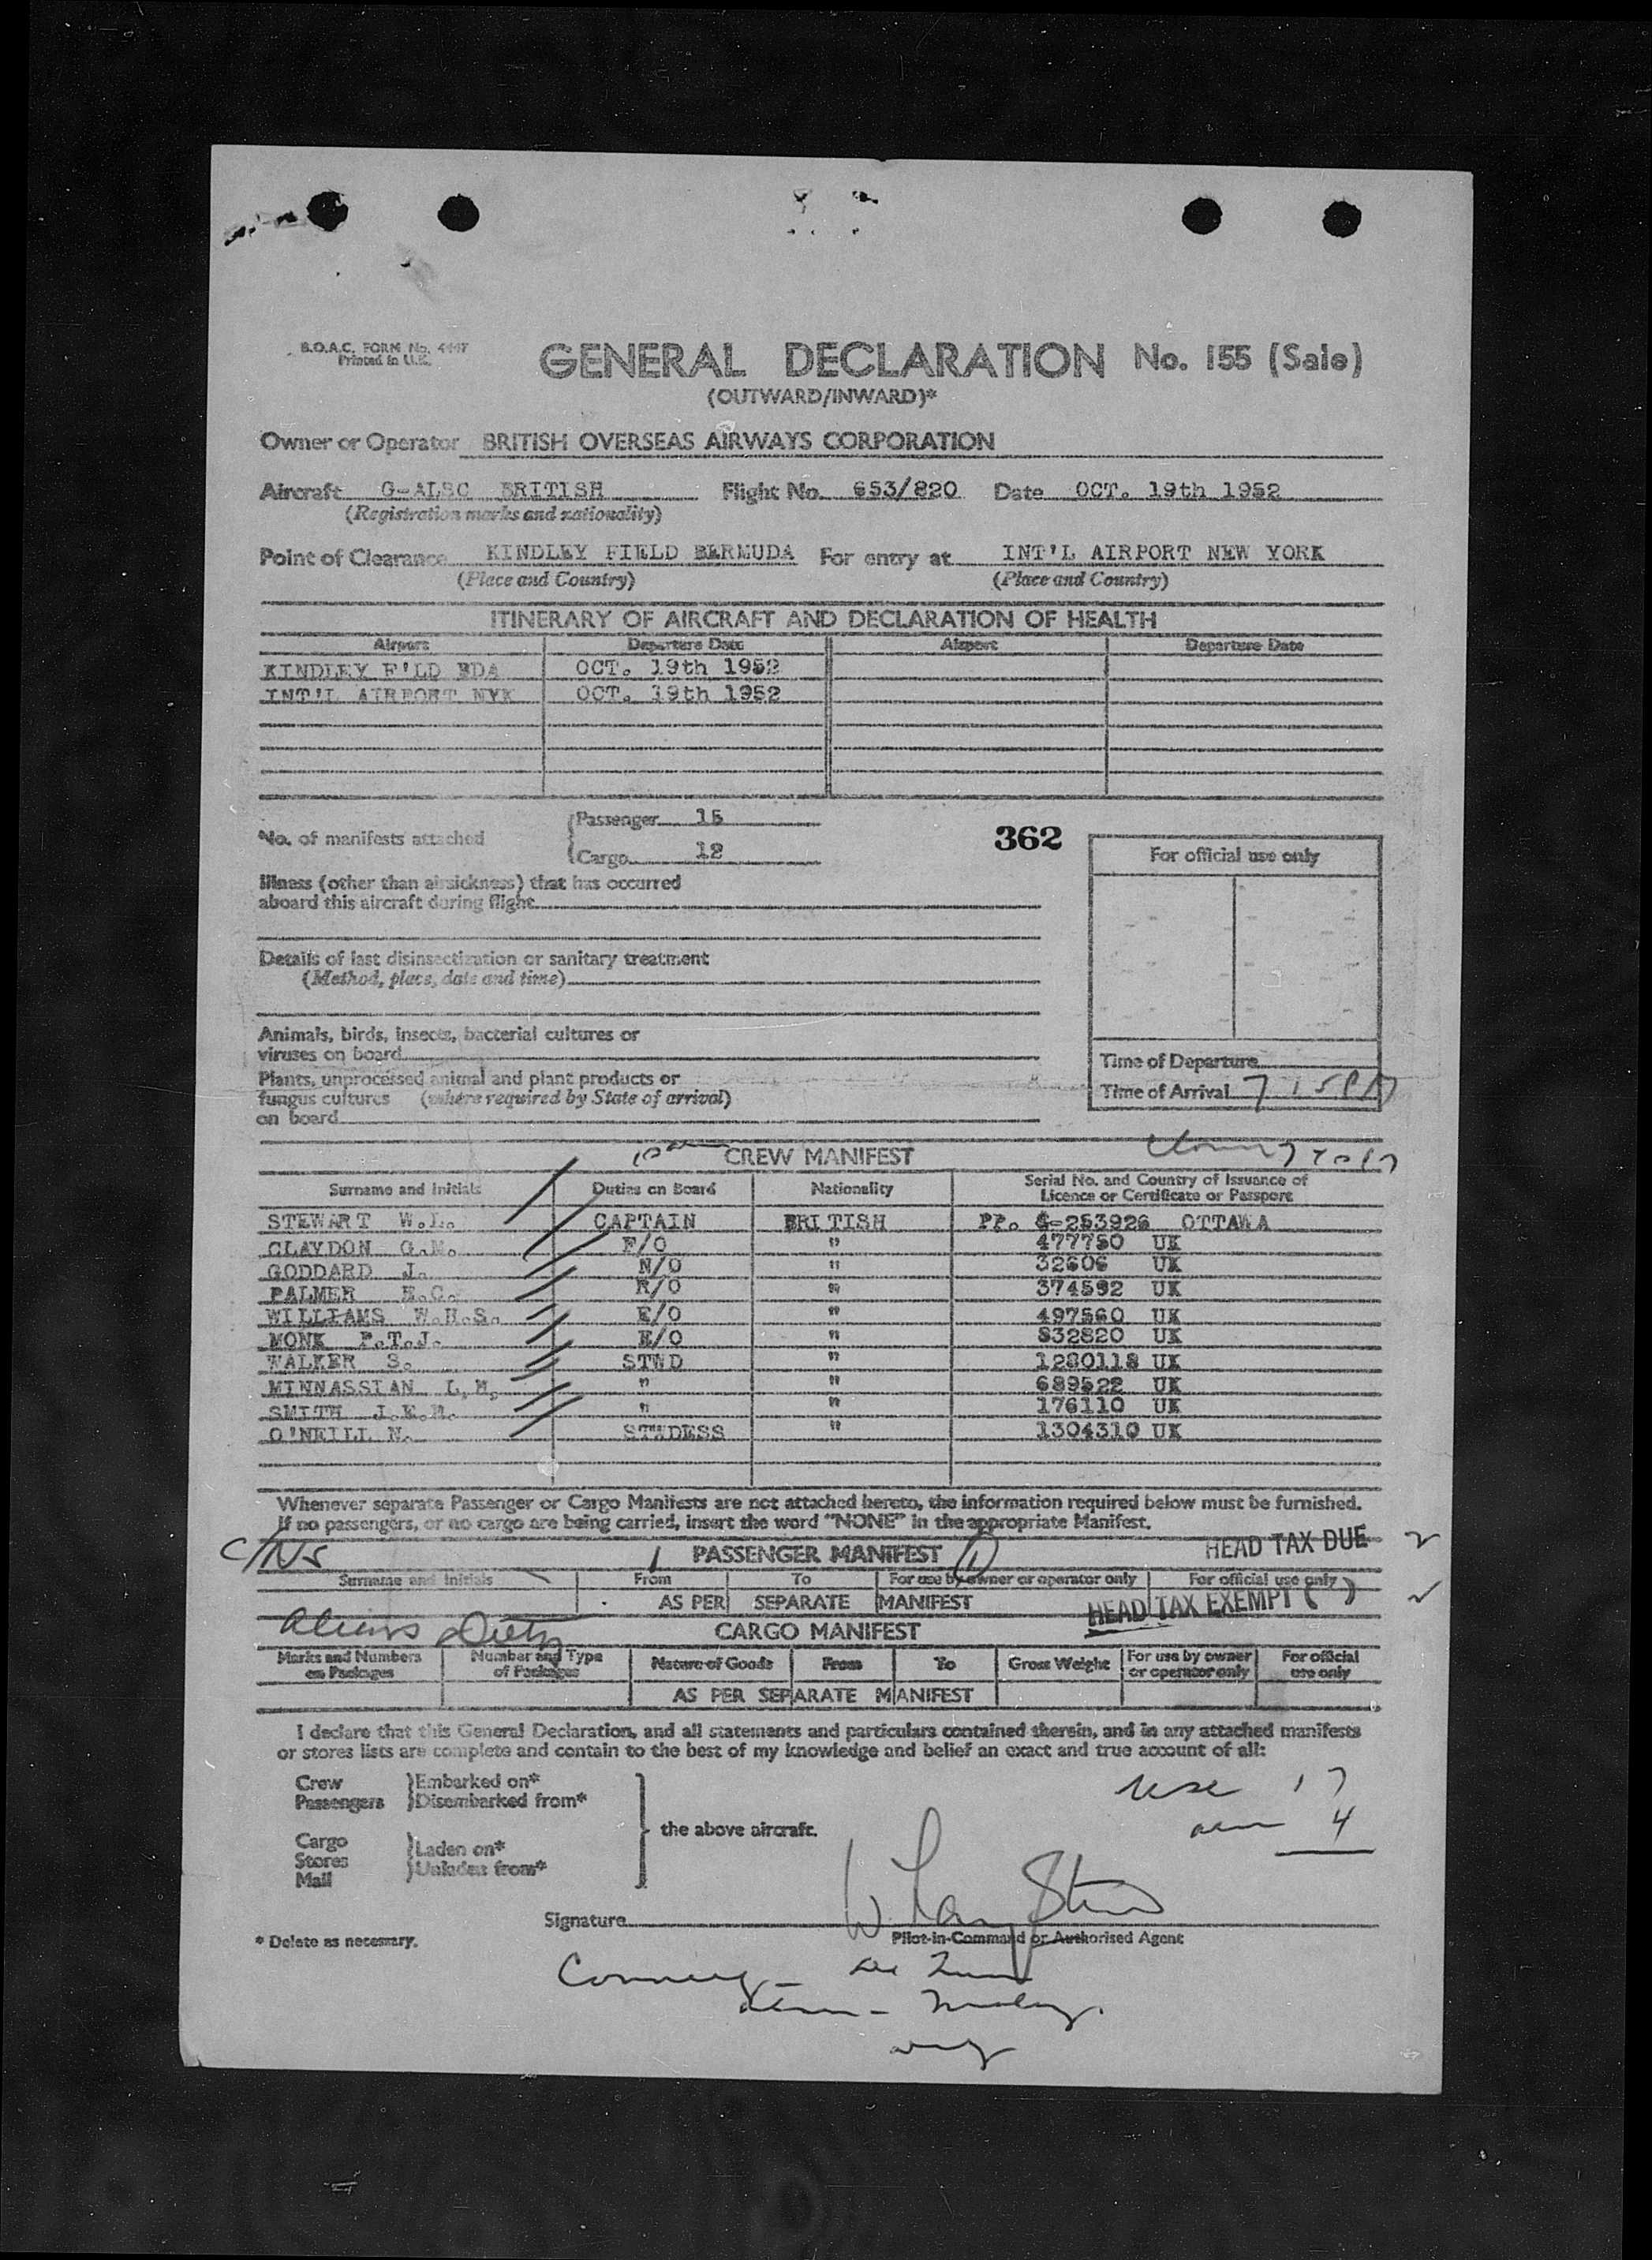 B.O.A.C. FORM No. 4447
Printed in U.K.
GENERAL DECLARATION No. 155 (Sale)
(OUTWARD/INWARD)*
Owner or Operator BRITISH OVERSEAS AIRWAYS CORPORATION
Aircraft G-ALSC BRITISH Flight No. 653/820 Date OCT. 19th 1952
(Registration marks and nationality)
Point of Clearance KINDLEY FIELD BERMUDA For entry at INT'L AIRPORT NEW YORK
(Place and Country) (Place and Country)
ITINERARY OF AIRCRAFT AND DECLARATION OF HEALTH
Airport Departure Date Airport Departure Date
KINDLEY F'LD BDA OCT. 19th 1952
INT'L AIRPORT NYK OCT. 19th 1952
No. of manifests attached
Passenger 15
Cargo 12
362
For official use only
Illness (other than airsickness) that has occurred
aboard this aircraft during flight
Details of last disinsectization or sanitary treatment
(Method, place, date and time)
Animals, birds, insects, bacterial cultures or
viruses on board
Plants, unprocessed animal and plant products or
fungus cultures (where required by State of arrival)
on board
Time of Departure
Time of Arrival 715PM
CREW MANIFEST
Surname and Initials Duties on Board Nationality Serial No. and Country of Issuance of
Licence or Certificate or Passport
STEWART W.L. CAPTAIN BRITISH PP. 4-253926 OTTAWA
CLAYDON G.N. F/O " 477750 UK
GODDARD J. N/O " 32606 UK
PALMER H.C. R/O " 374592 UK
WILLIAMS W.H.S. E/O " 497560 UK
MONK P.T.J. E/O " 832820 UK
WALKER S. STWD " 1280118 UK
MINNASSIAN L.H. " " 689522 UK
SMITH J.E.M. " " 176110 UK
O'NEILL N. STWDESS " 1304310 UK
Whenever separate Passenger or Cargo Manifests are not attached hereto, the information required below must be furnished.
If no passengers, or no cargo are being carried, insert the word "NONE" in the appropriate Manifest.
PASSENGER MANIFEST (1) HEAD TAX DUE
Surname and Initials From To For use by owner or operator only For official use only
AS PER SEPARATE MANIFEST HEAD TAX EXEMPT
CARGO MANIFEST
Marks and Numbers on Packages Number and Type of Packages Nature of Goods From To Gross Weight For use by owner or operator only For official use only
AS PER SEPARATE MANIFEST
I declare that this General Declaration, and all statements and particulars contained therein, and in any attached manifests
or stores lists are complete and contain to the best of my knowledge and belief an exact and true account of all:
Crew Embarked on*
Passengers Disembarked from*
the above aircraft.
Cargo Laden on*
Stores Unladen from*
Mail
17
4
Signature
Pilot-in-Command or Authorised Agent
* Delete as necessary.